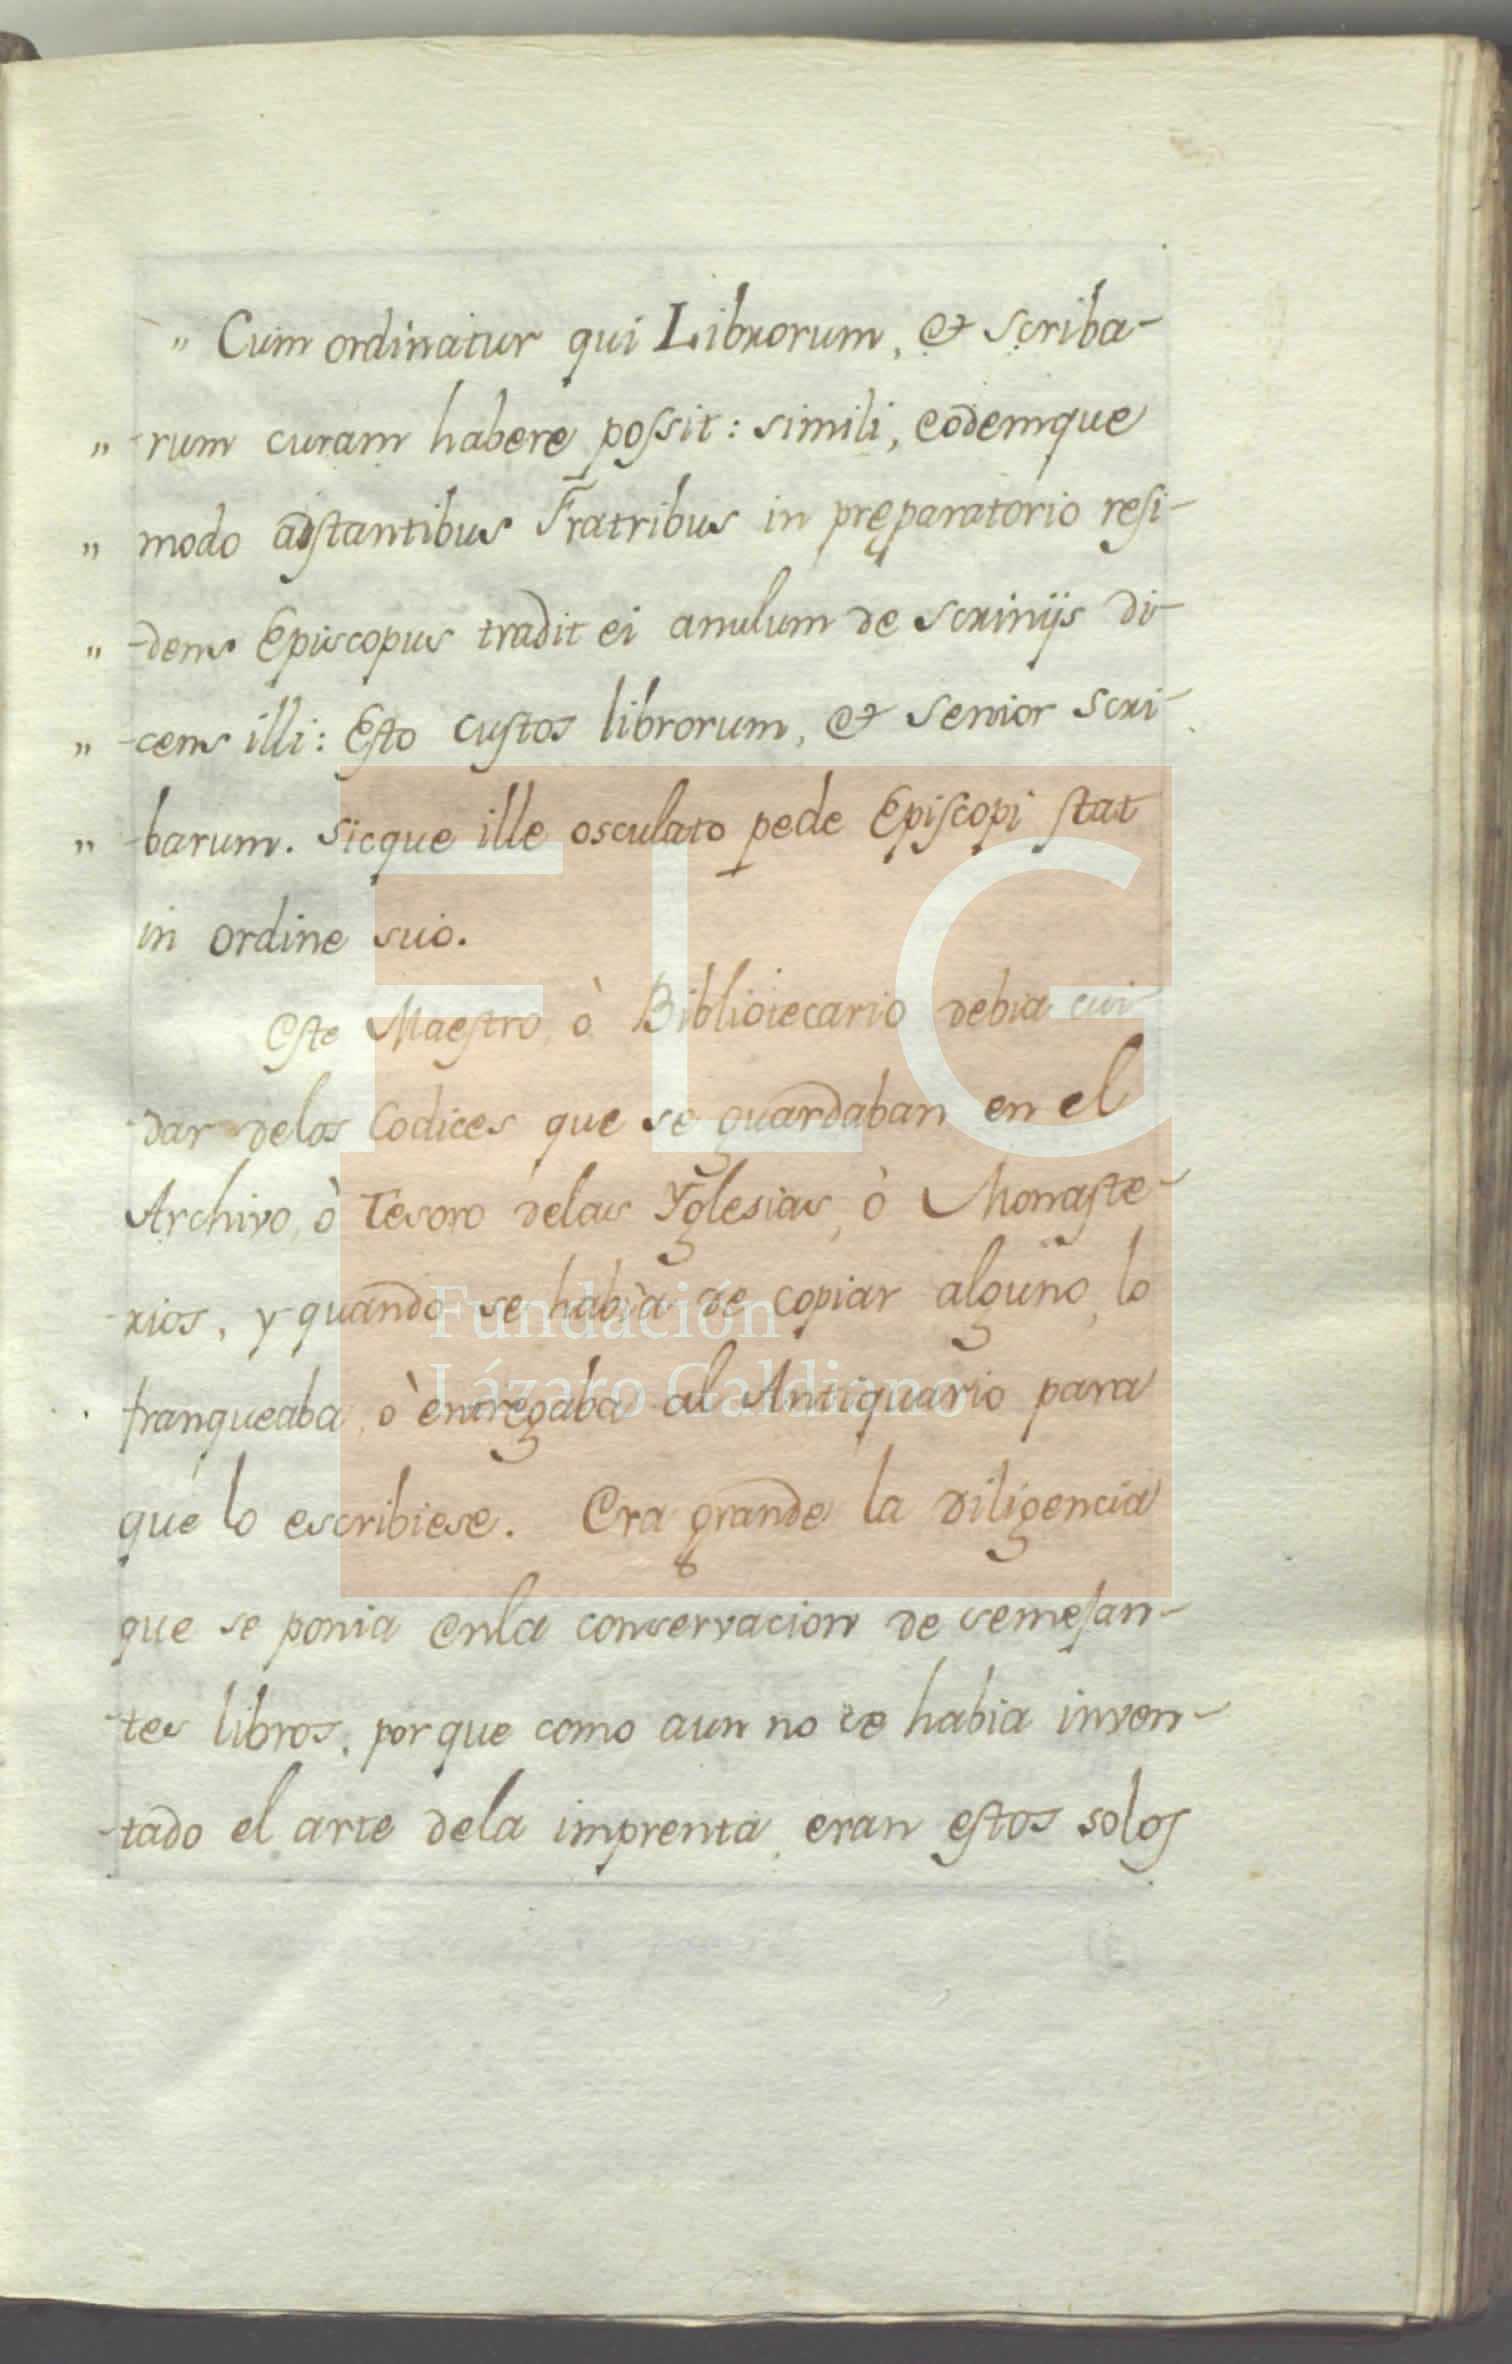 „ Cum ordinatur qui Librorum, et scriba-
„ -rum curam habere possit: simili, eodemque
„ modo adstantibus Fratribus in pręparatorio resi-
„ -dens Episcopus tradit ei anulum de scrinijs di-
„ -cens illi: Esto custos librorum, et senior scri-
„ -barum. Sicque ille osculato pede Episcopi stat
in ordine suo.
Este Maestro, ò Bibliotecario debia cui-
-dar delos Codices que se guardaban en el
Archivo, ò Tesoro delas Yglesias, ò Monaste-
-rios, y quando se habia de copiar alguno, lo
franqueaba, ò entregaba al Antiquario para
que lo escribiese. Era grande la diligencia
que se ponia enla conservacion de semejan-
-tes libros, por que como aun no se habia inven-
-tado el arte dela imprenta, eran estos solos
FLG
Fundación
Lázaro Galdiano